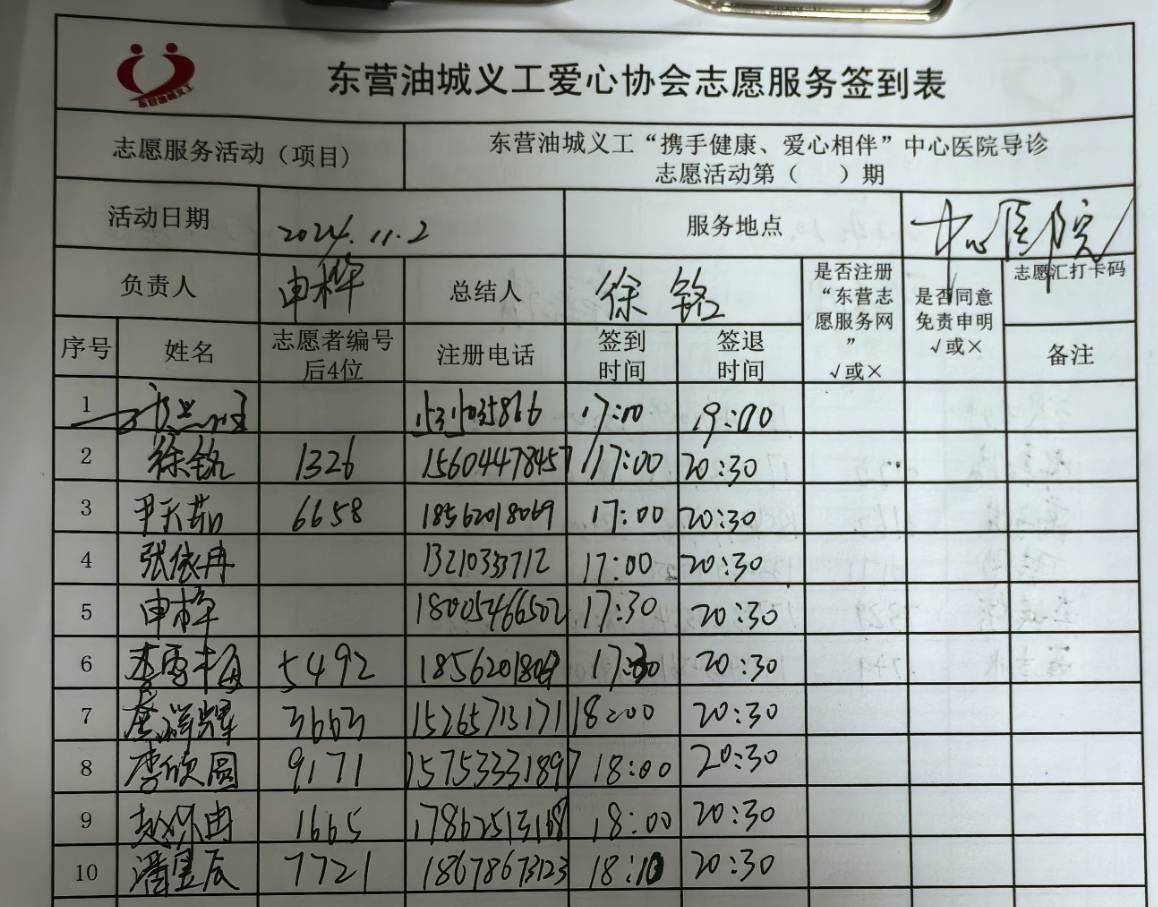 东营油城义工
东营油城义工爱心协会志愿服务签到表
志愿服务活动（项目） 东营油城义工“携手健康、爱心相伴”中心医院导诊
志愿活动第（ ）期
活动日期 2024.11.2 服务地点 中心医院
负责人 申桦 总结人 徐铭 是否注册“东营志愿服务网”√或× 是否同意免责申明√或× 志愿汇打卡码
序号 姓名 志愿者编号后4位 注册电话 签到时间 签退时间 备注
1 17:00 19:00
2 徐铭 1326 15604478457 17:00 20:30
3 尹天茹 6658 18562018069 17:00 20:30
4 张依冉 13210333712 17:00 20:30
5 申桦 18005466502 17:30 20:30
6 5492 20:30
7 3663 15265713171 18:00 20:30
8 李欣圆 9171 15753331897 18:00 20:30
9 1665 18:00 20:30
10 潘昱辰 7721 18678673123 18:10 20:30